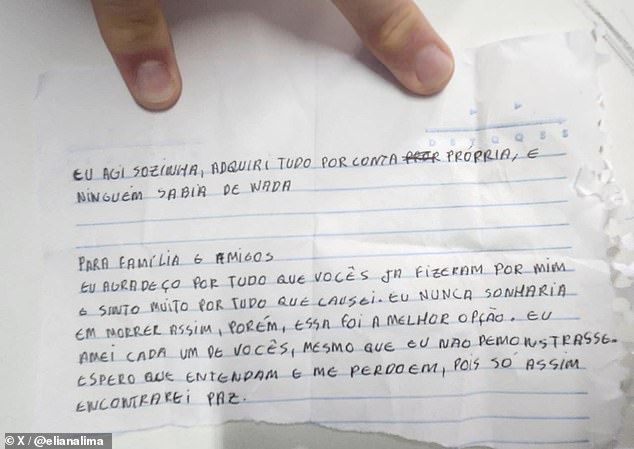 D S T Q Q S S
EU AGI SOZINHA, ADQUIRI TUDO POR CONTA PRÓPRIA, E
NINGUÉM SABIA DE NADA
PARA FAMÍLIA E AMIGOS
EU AGRADEÇO POR TUDO QUE VOCÊS JA FIZERAM POR MIM
E SINTO MUITO POR TUDO QUE CAUSEI. EU NUNCA SONHARIA
EM MORRER ASSIM, PORÉM, ESSA FOI A MELHOR OPÇÃO. EU
AMEI CADA UM DE VOCÊS, MESMO QUE EU NÃO DEMONSTRASSE.
ESPERO QUE ENTENDAM E ME PERDOEM, POIS SÓ ASSIM
ENCONTRAREI PAZ.
© X / @elianalima